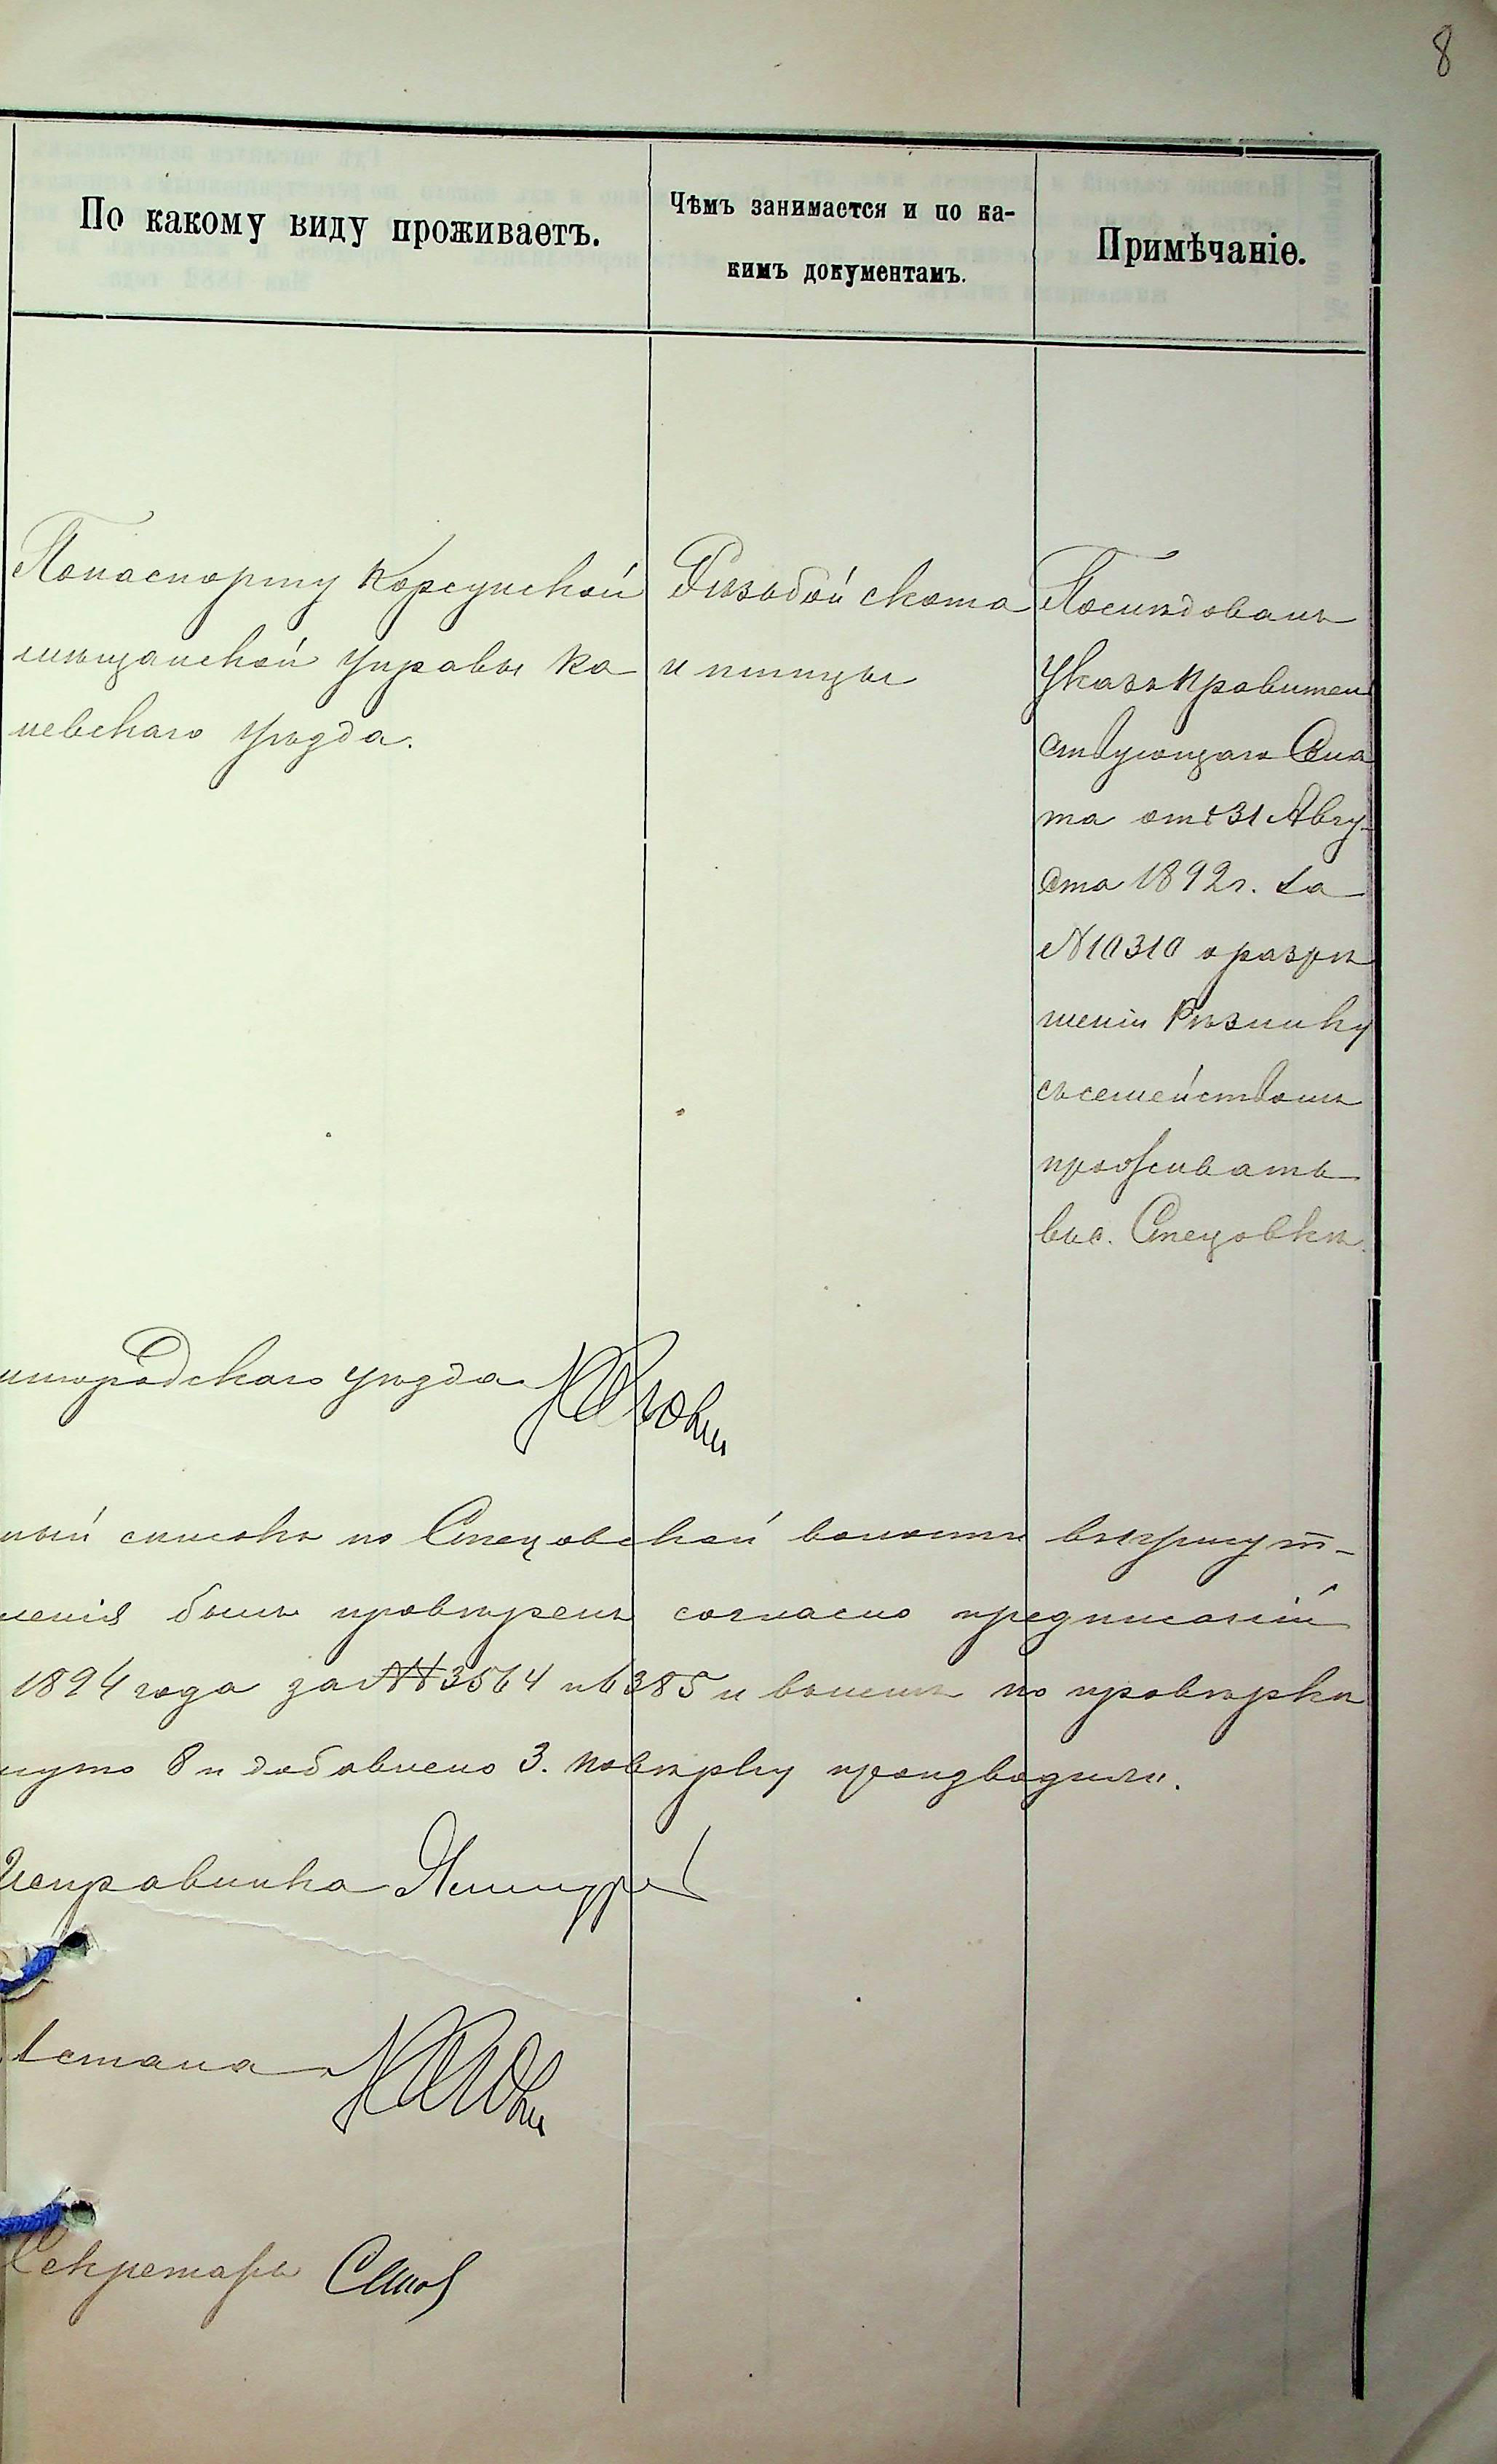 8
По какому виду проживаетъ.
Чѣмъ занимается и по ка-
кимъ документамъ.
Примѣчаніе.
Попаспорту Корсунской
мѣщанской Управы Ка
невскаго Уѣзда.
Рѣзьбой скота
и птицы
Послѣдовалъ
Указъ Правител
ствующаго Сена
та отъ 31 Авгу-
ста 1892 г. за
№ 10310 о разрѣ
шеніи Рѣзнику
съ семействомъ
проживать
въ с. Стецовкѣ.
игородскаго уѣзда
ный списокъ по Стецовской волости въ присут-
ленія былъ провѣренъ согласно предписаній
1894 года за №№ 3564 и 6385 и вышли по провѣрки
нуто 8 и добавлено 3. Повѣрку производили.
Исправника
Секретарь